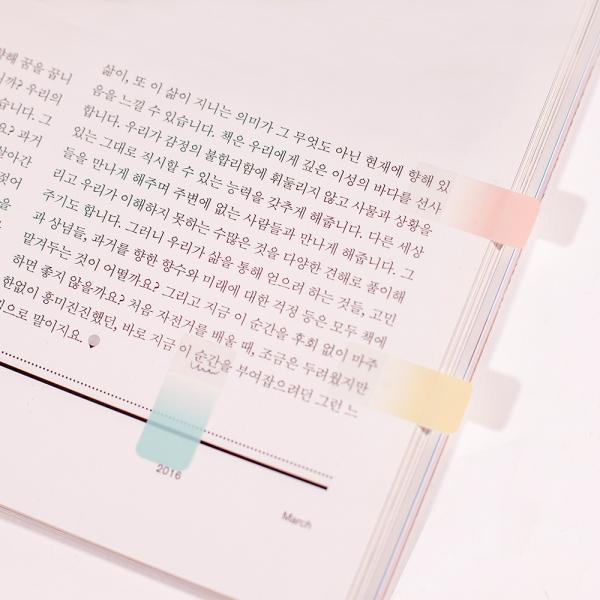 향해 꿈을 꿉니
까? 우리의
습니다. 그
요? 과거
살아간
짓어
을
삶이, 또 이 삶이 지니는 의미가 그 무엇도 아닌 현재에 향해 있
음을 느낄 수 있습니다. 책은 우리에게 깊은 이성의 바다를 선사
합니다. 우리가 감정의 불합리함에 휘둘리지 않고 사물과 상황을
있는 그대로 직시할 수 있는 능력을 갖추게 해줍니다. 다른 세상
들을 만나게 해주며 주변에 없는 사람들과 만나게 해줍니다. 그
리고 우리가 이해하지 못하는 수많은 것을 다양한 견해로 풀이해
주기도 합니다. 그러니 우리가 삶을 통해 얻으려 하는 것들, 고민
과 상념들, 과거를 향한 향수와 미래에 대한 걱정 등은 모두 책에
맡겨두는 것이 어떨까요? 그리고 지금 이 순간을 후회 없이 마주
하면 좋지 않을까요? 처음 자전거를 배울 때, 조금은 두려웠지만
한없이 흥미진진했던, 바로 지금 이 순간을 부여잡으려던 그런 느
낌으로 말이지요.
2016
March